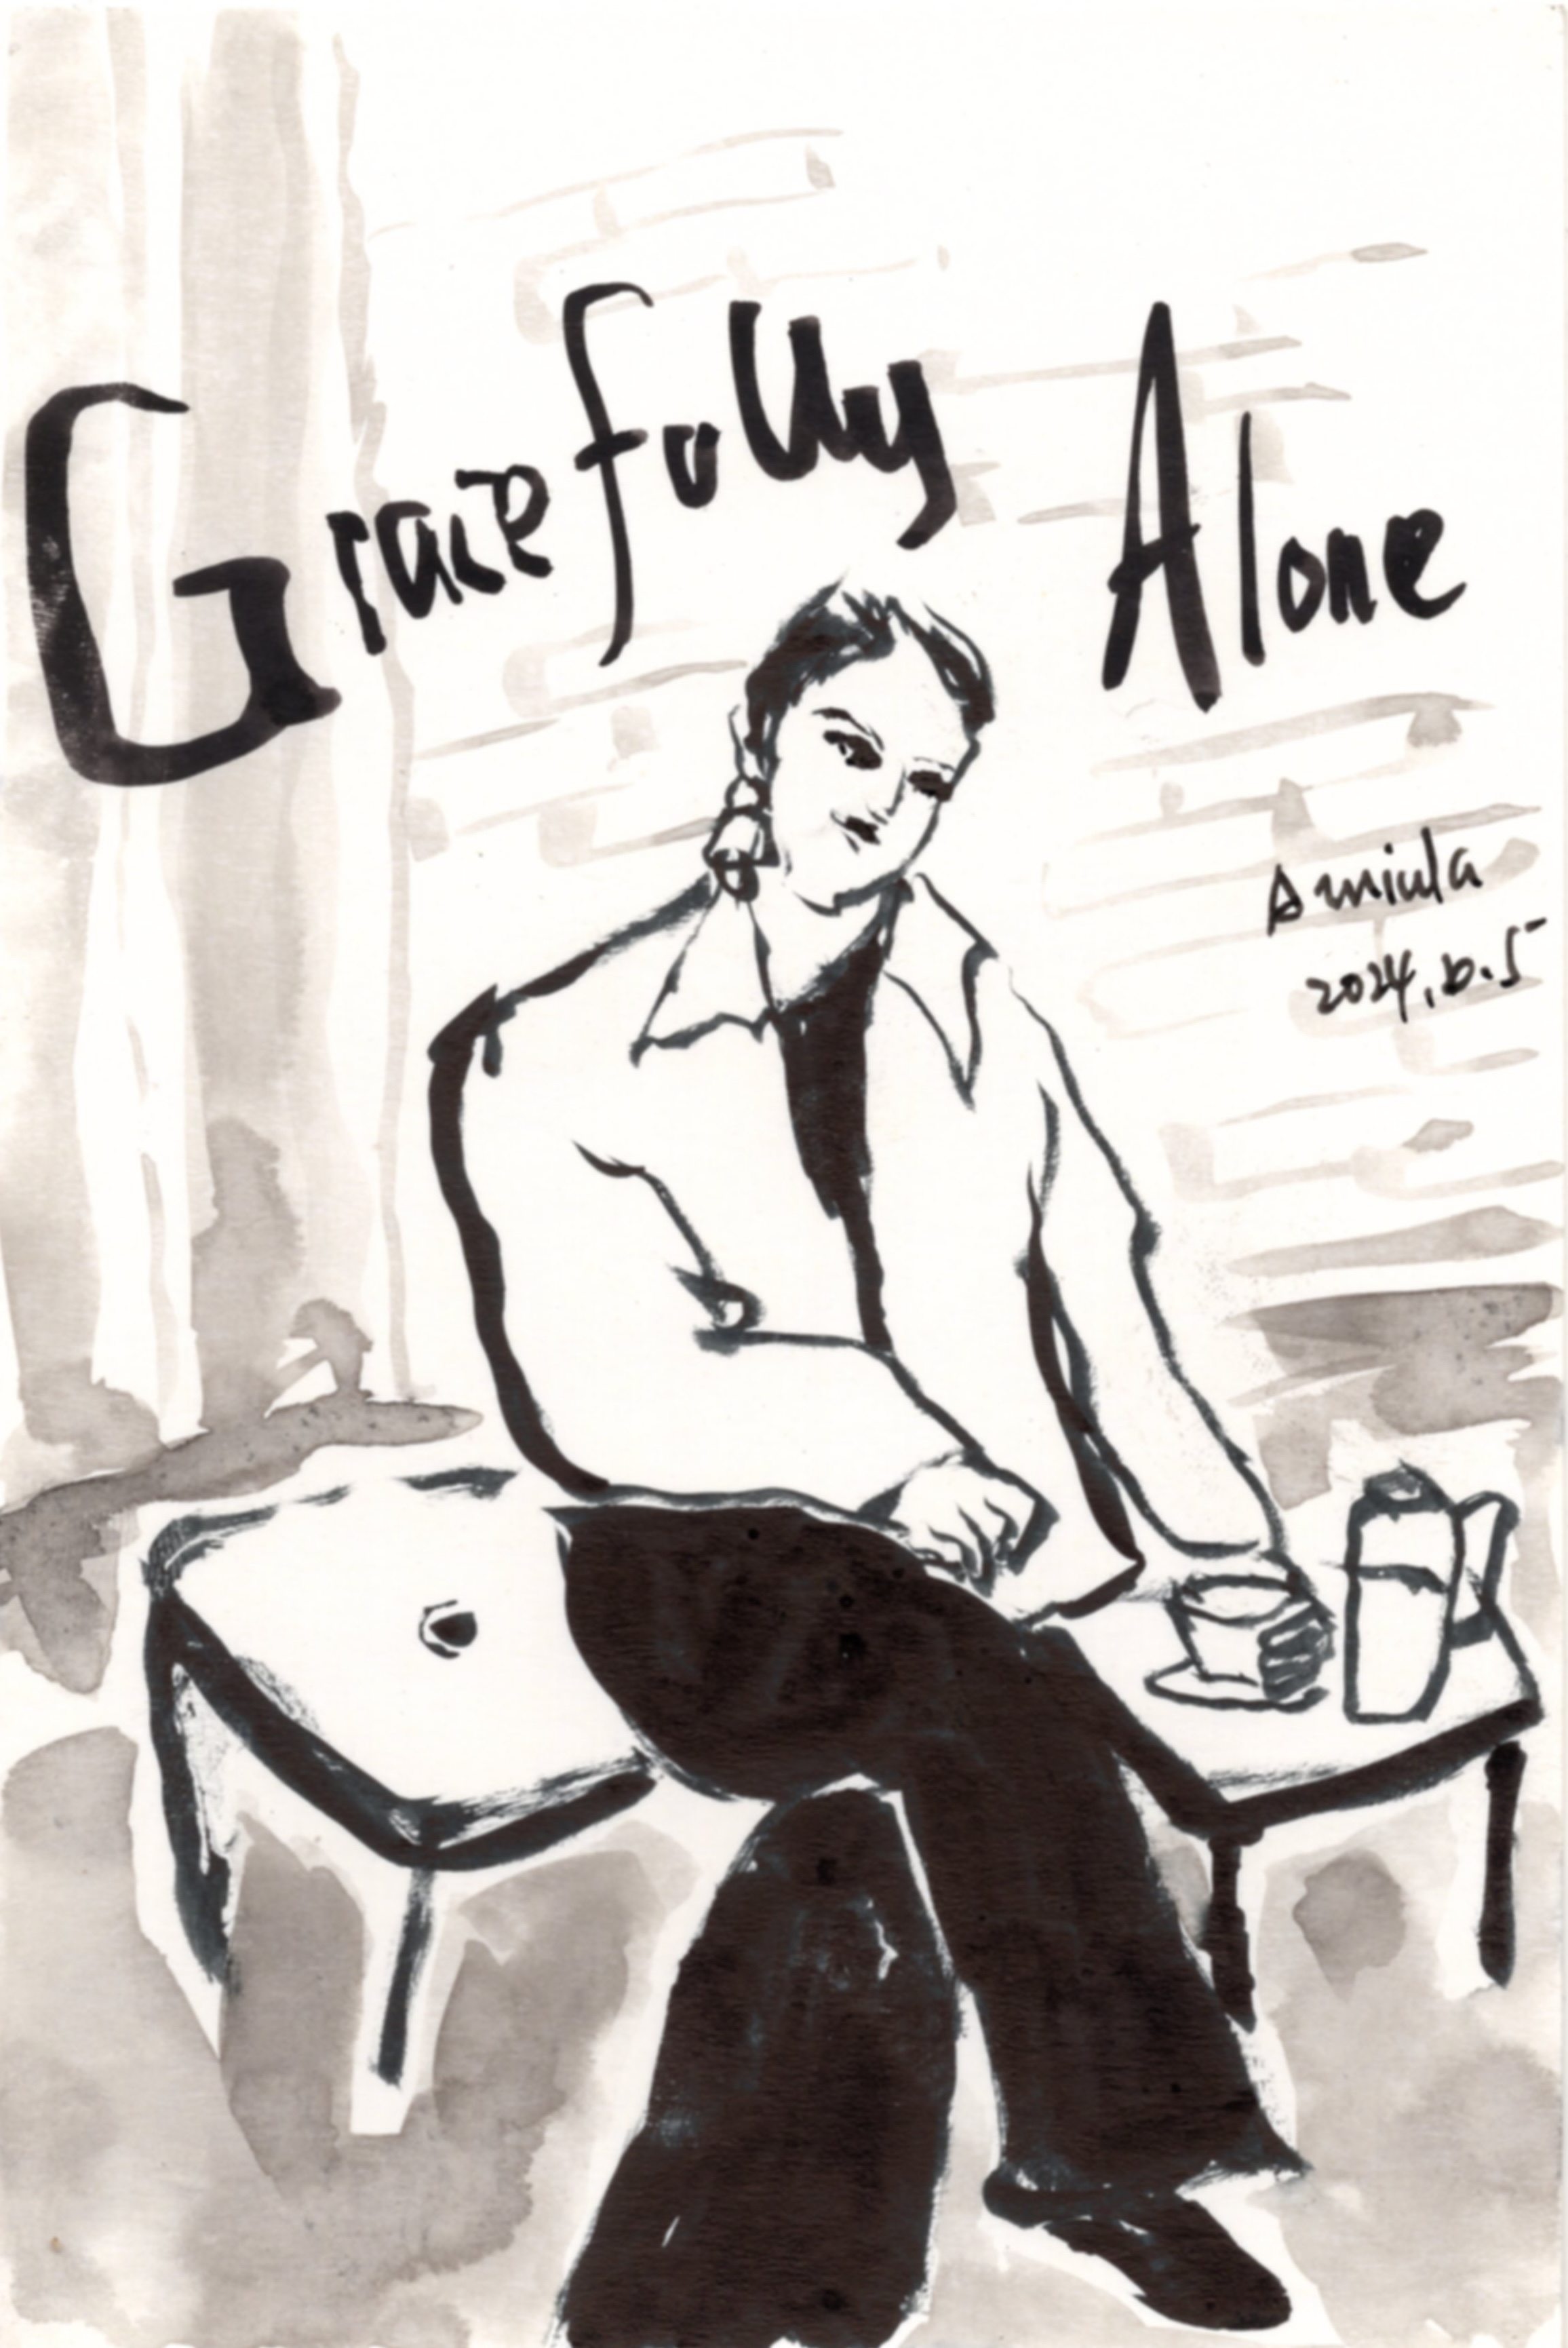 Gracefully Alone
Amiula
2024.6.5